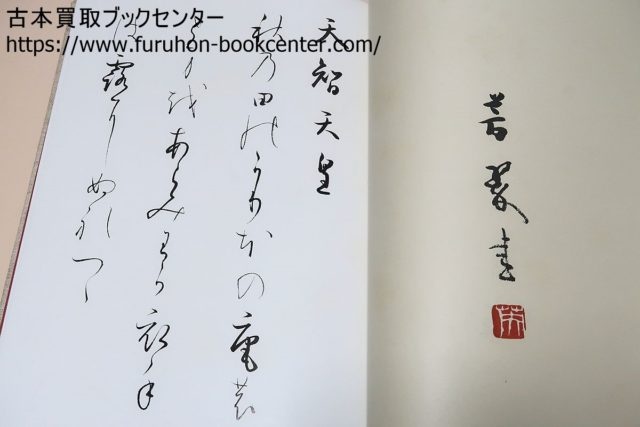 古本買取ブックセンター
https://www.furuhon-bookcenter.com/
芳翠書
天智天皇
秋乃田能かりほの庵農
とま越あらみわ可衣手
は露耳ぬれつゝ